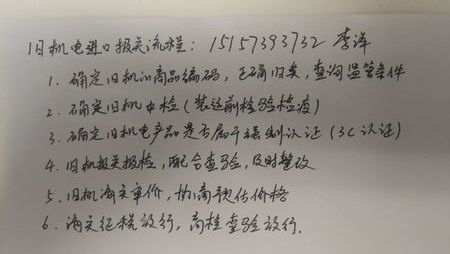 旧机电进口报关流程：15157393732 李洋
1. 确定旧机的商品编码，正确归类，查询监管条件
2. 确定旧机中检（装运前检验检疫）
3. 确定旧机电产品是否属于强制认证（3C认证）
4. 旧机报关报检，配合查验，及时整改
5. 旧机海关审价，协商预估价格
6. 海关征税放行，商检查验放行.